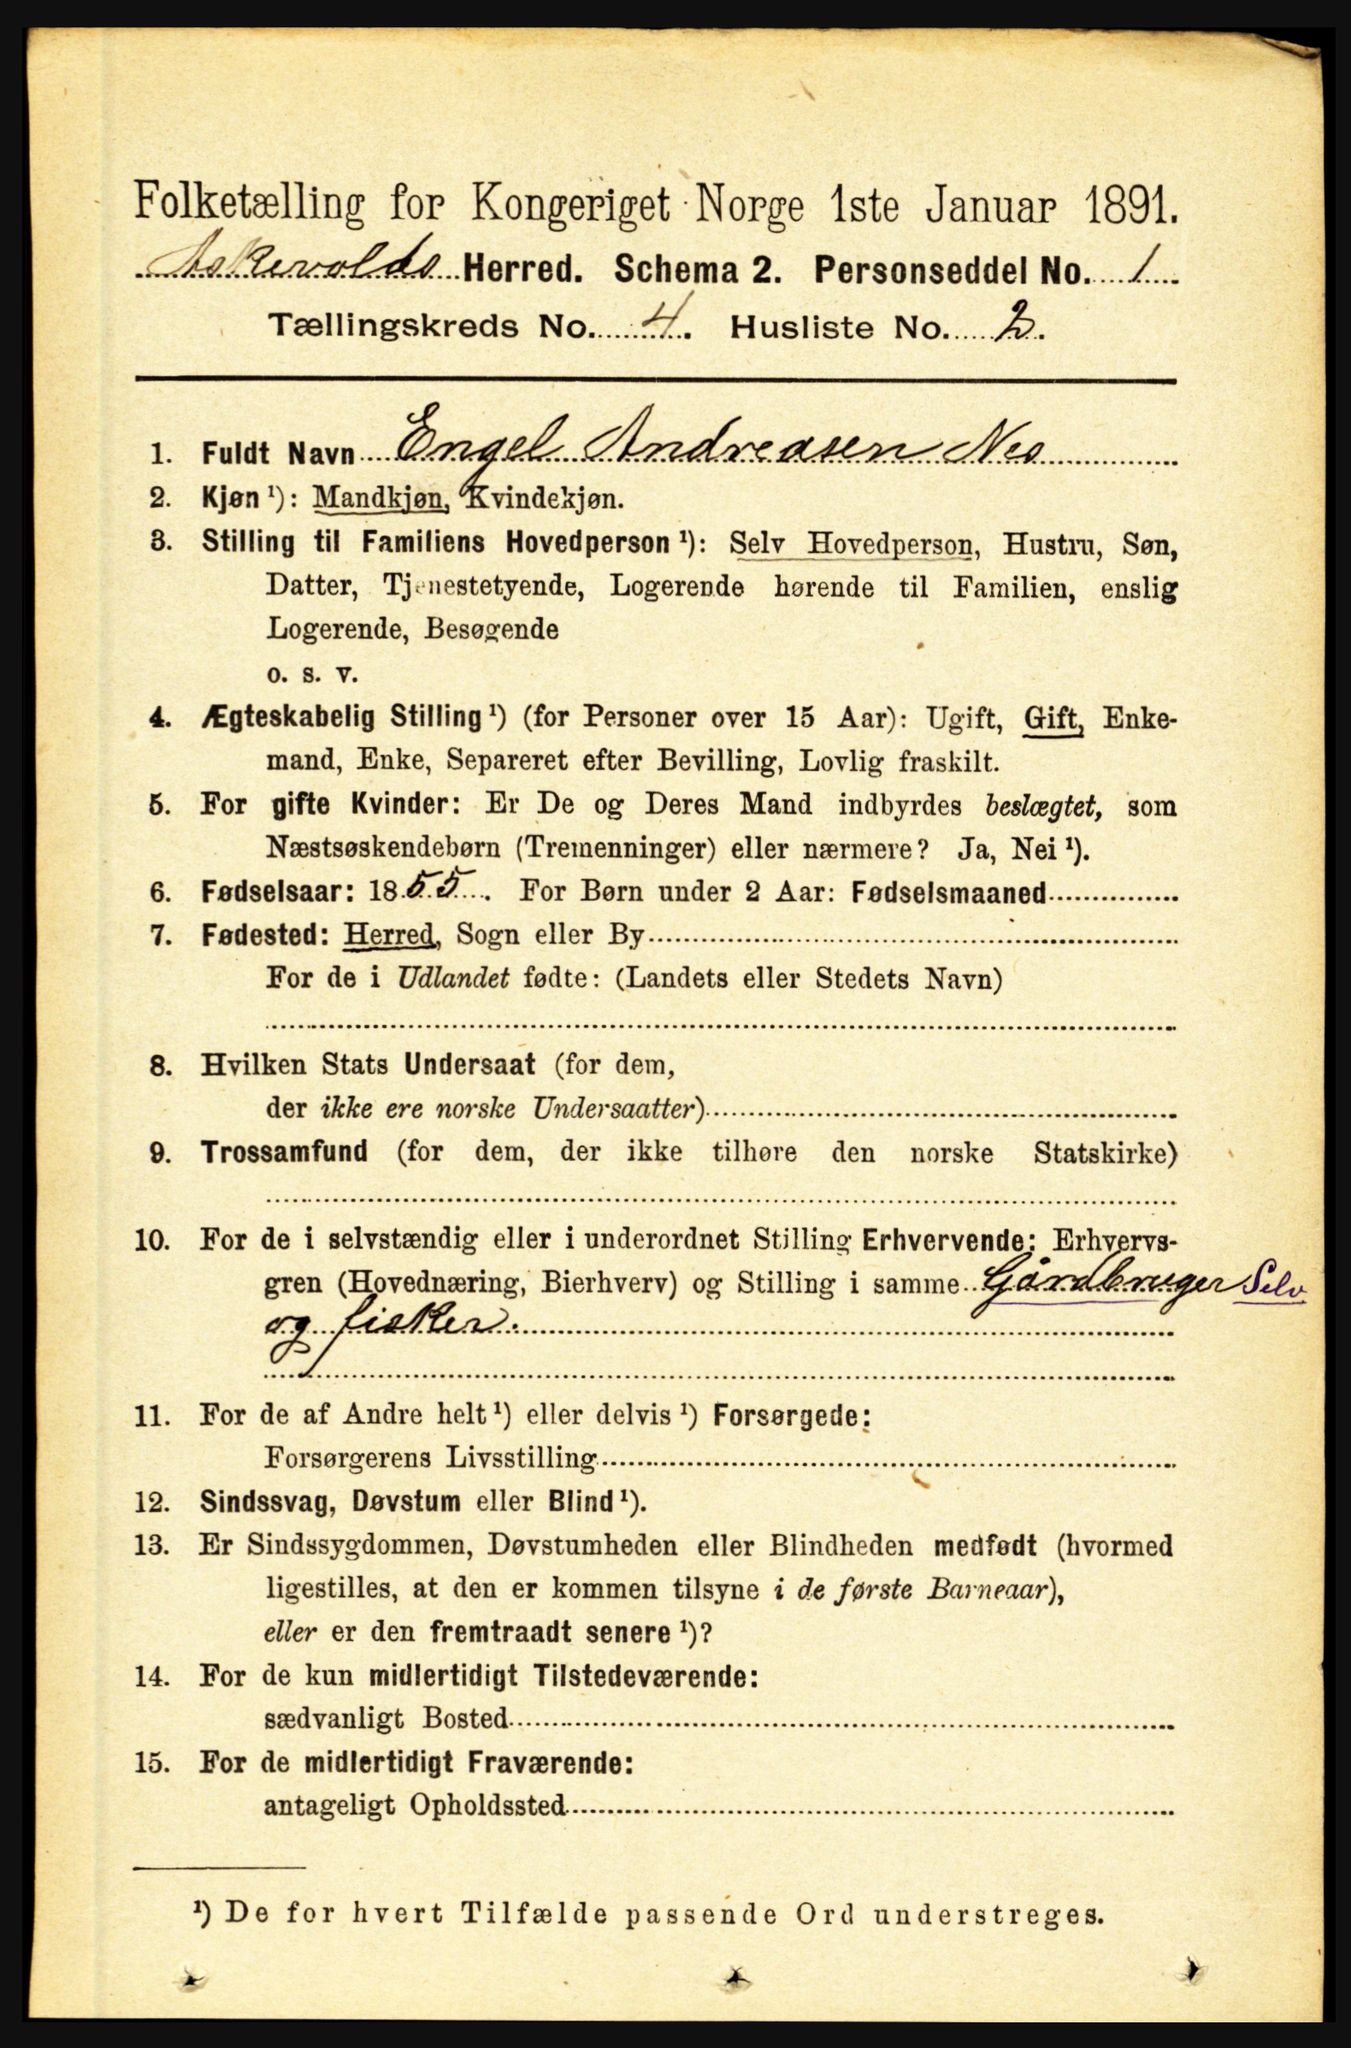 Folketælling for Kongeriget Norge 1ste Januar 1891.
Askevolds Herred. Schema 2. Personseddel No. 1
Tællingskreds No. 4. Husliste No. 2.
1. Fuldt Navn Engel Andreasen Nes
2. Kjøn ¹): Mandkjøn, Kvindekjøn.
3. Stilling til Familiens Hovedperson ¹): Selv Hovedperson, Hustru, Søn,
Datter, Tjenestetyende, Logerende hørende til Familien, enslig
Logerende, Besøgende
o. s. v.
4. Ægteskabelig Stilling ¹) (for Personer over 15 Aar): Ugift, Gift, Enke-
mand, Enke, Separeret efter Bevilling, Lovlig fraskilt.
5. For gifte Kvinder: Er De og Deres Mand indbyrdes beslægtet, som
Næstsøskendebørn (Tremenninger) eller nærmere? Ja, Nei ¹).
6. Fødselsaar: 1855. For Børn under 2 Aar: Fødselsmaaned
7. Fødested: Herred, Sogn eller By
For de i Udlandet fødte: (Landets eller Stedets Navn)
8. Hvilken Stats Undersaat (for dem,
der ikke ere norske Undersaatter)
9. Trossamfund (for dem, der ikke tilhøre den norske Statskirke)
10. For de i selvstændig eller i underordnet Stilling Erhvervende: Erhvervs-
gren (Hovednæring, Bierhverv) og Stilling i samme Gårdbruger Selv
og fisker.
11. For de af Andre helt ¹) eller delvis ¹) Forsørgede:
Forsørgerens Livsstilling
12. Sindssvag, Døvstum eller Blind ¹).
13. Er Sindssygdommen, Døvstumheden eller Blindheden medfødt (hvormed
ligestilles, at den er kommen tilsyne i de første Barneaar),
eller er den fremtraadt senere ¹)?
14. For de kun midlertidigt Tilstedeværende:
sædvanligt Bosted
15. For de midlertidigt Fraværende:
antageligt Opholdssted
¹) De for hvert Tilfælde passende Ord understreges.